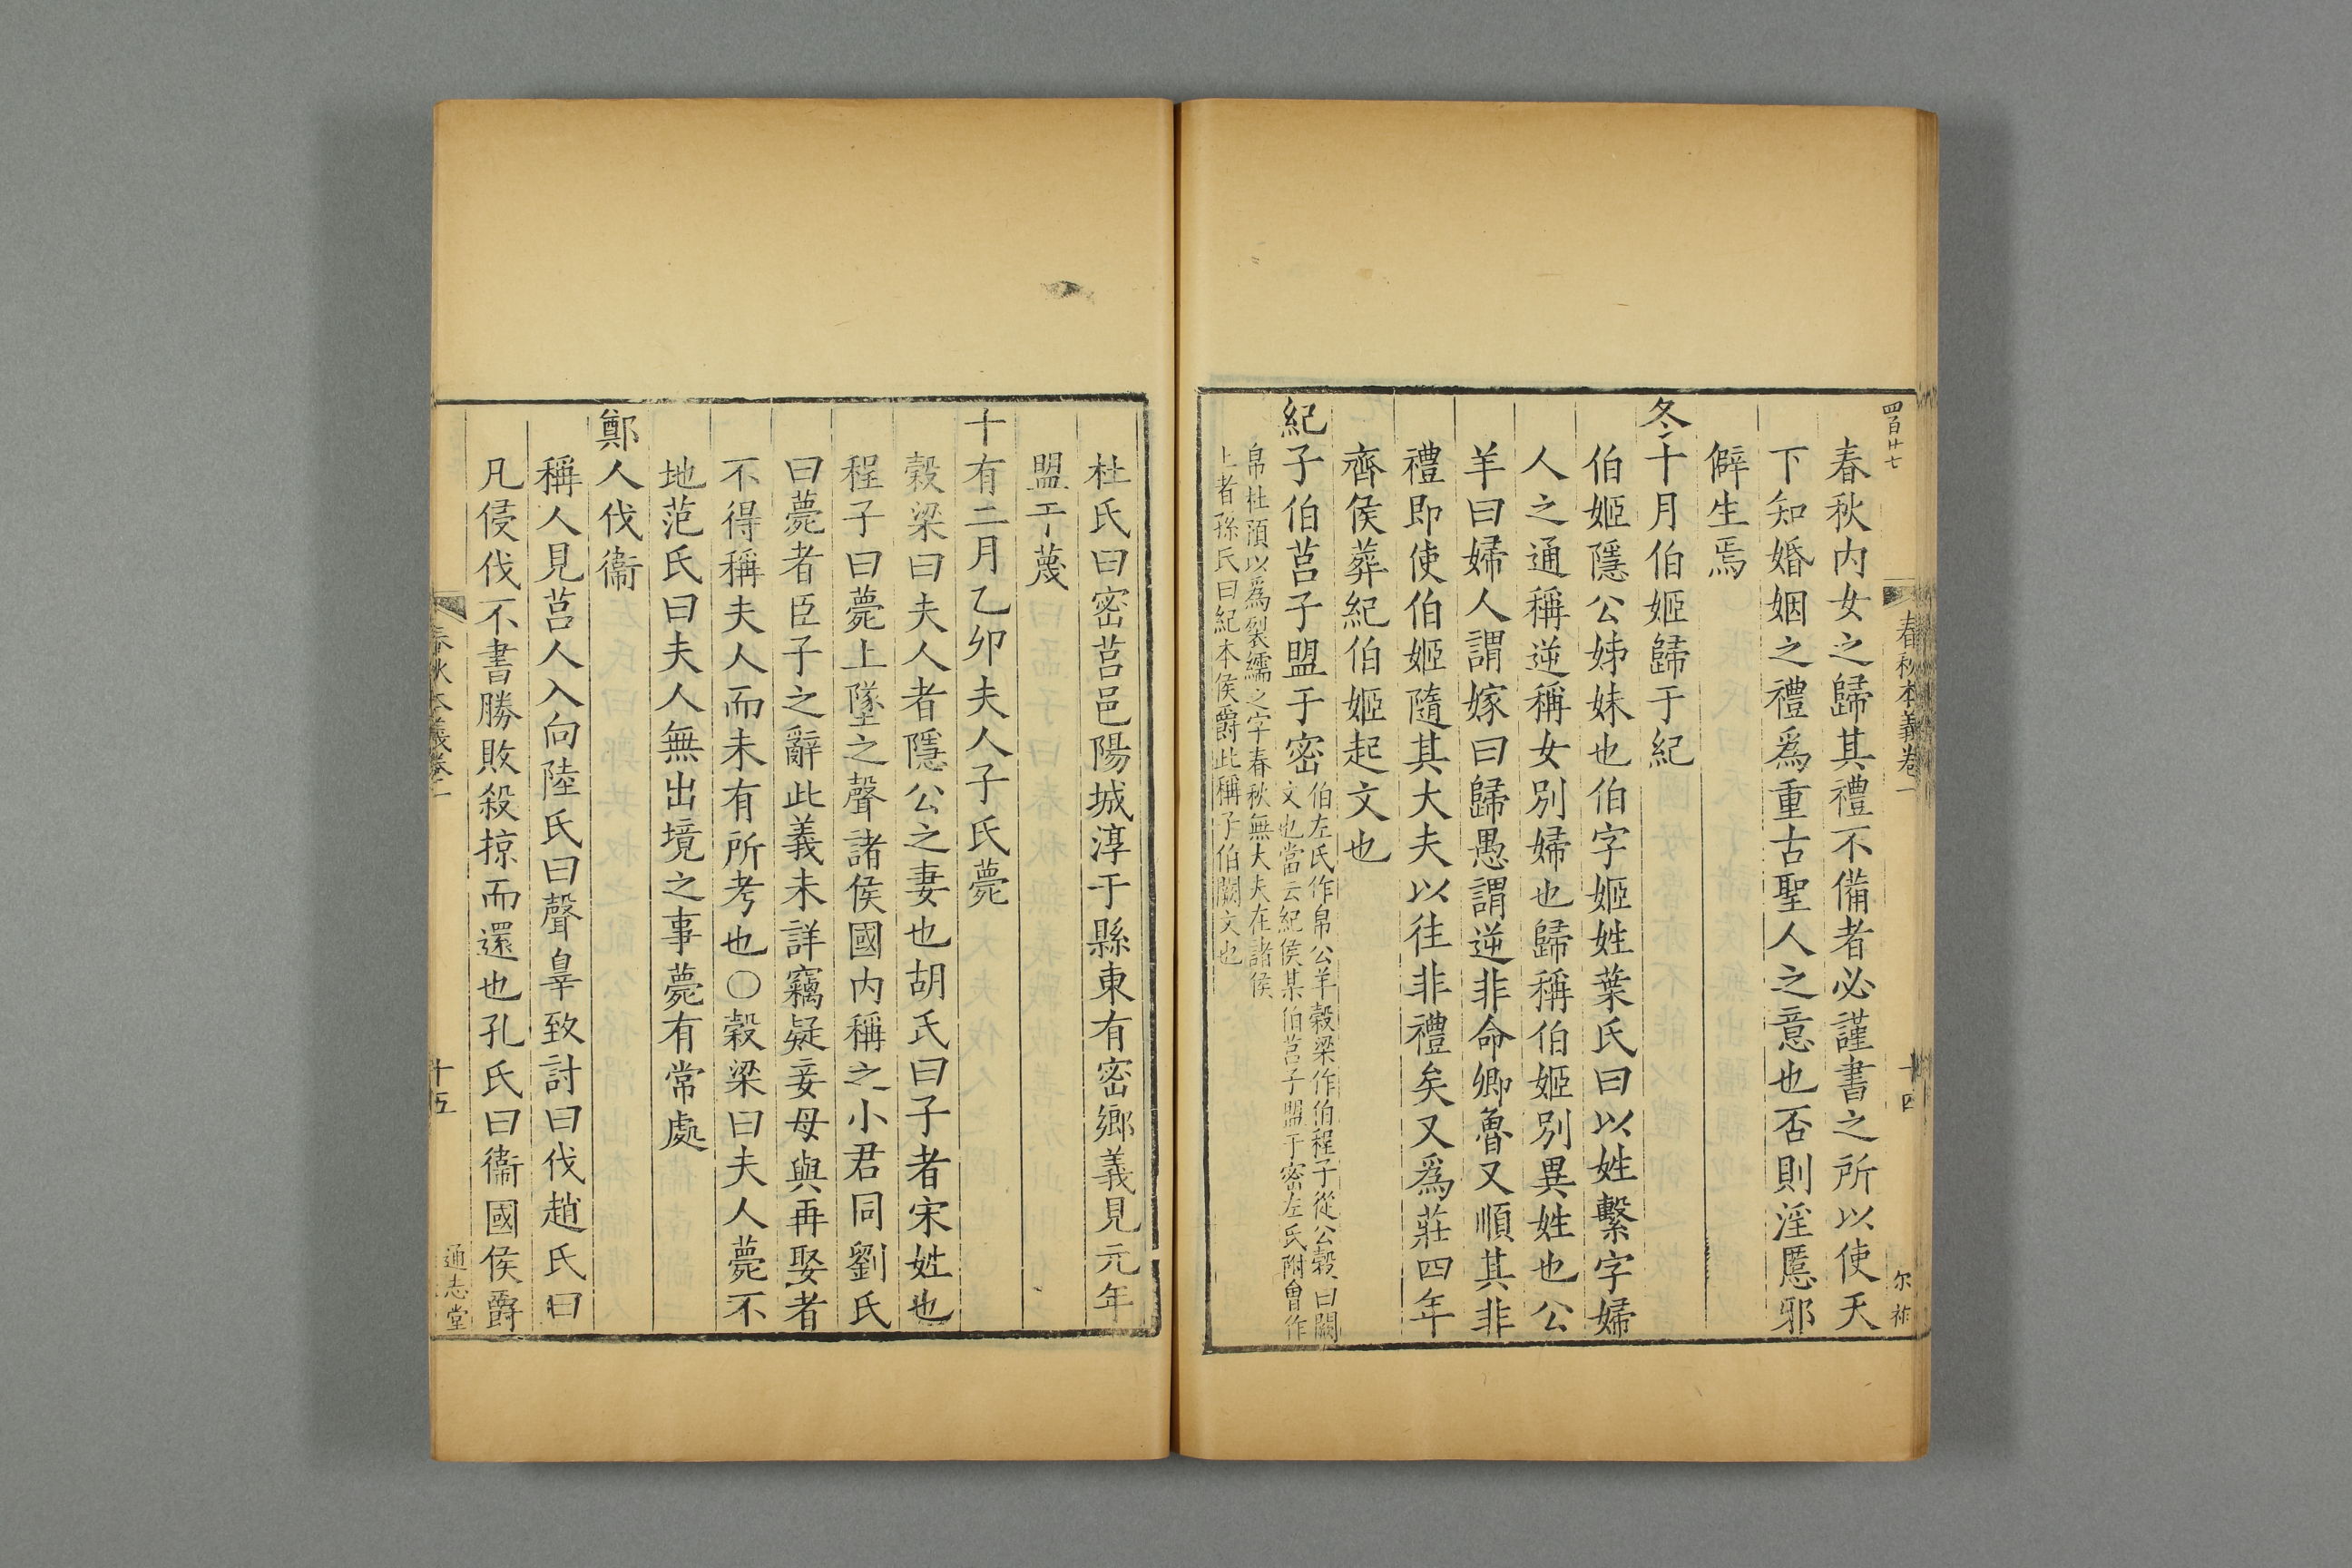 四百廿七
春秋本義卷一
十四
尔祢
春秋内女之歸其禮不備者必謹書之所以使天
下知婚姻之禮爲重古聖人之意也否則淫慝邪
僻生焉
冬十月伯姬歸于紀
伯姬隱公姊妹也伯字姬姓葉氏曰以姓繫字婦
人之通稱逆稱女別婦也歸稱伯姬別異姓也公
羊曰婦人謂嫁曰歸愚謂逆非命卿魯又順其非
禮即使伯姬隨其大夫以往非禮矣又爲莊四年
齊侯葬紀伯姬起文也
紀子伯莒子盟于密
伯左氏作帛公羊穀梁作伯程子從公穀曰闕
文也當云紀侯某伯莒子盟于密左氏附會作
帛杜預以爲裂繻之字春秋無大夫在諸侯
上者孫氏曰紀本侯爵此稱子伯闕文也
杜氏曰密莒邑陽城淳于縣東有密鄉義見元年
盟于蔑
十有二月乙卯夫人子氏薨
穀梁曰夫人者隱公之妻也胡氏曰子者宋姓也
程子曰薨上墜之聲諸侯國内稱之小君同劉氏
曰薨者臣子之辭此義未詳竊疑妾母與再娶者
不得稱夫人而未有所考也〇穀梁曰夫人薨不
地范氏曰夫人無出境之事薨有常處
鄭人伐衞
稱人見莒人入向陸氏曰聲辠致討曰伐趙氏曰
凡侵伐不書勝敗殺掠而還也孔氏曰衞國侯爵
春秋本義卷一
十五
通志堂